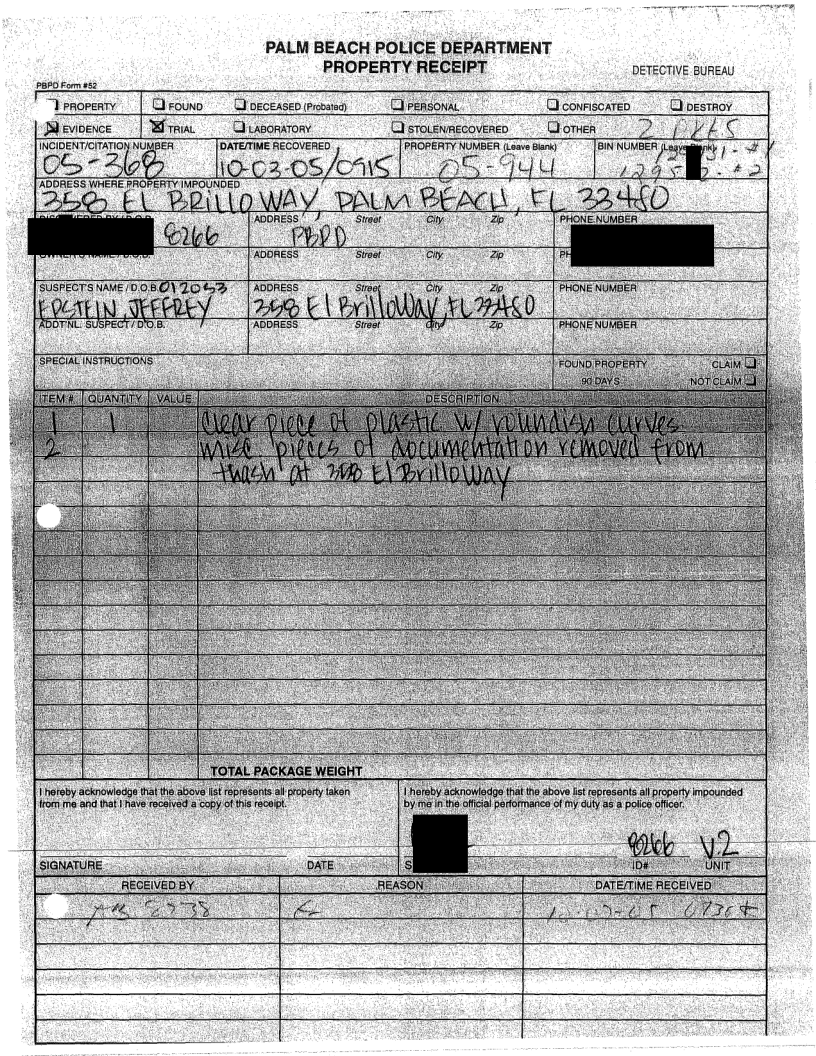 PALM BEACH POLICE DEPARTMENT
PROPERTY RECEIPT
DETECTIVE BUREAU
PBPD Form #52
PROPERTY FOUND DECEASED (Probated) PERSONAL CONFISCATED DESTROY
EVIDENCE TRIAL LABORATORY STOLEN/RECOVERED OTHER 2 PKGS
INCIDENT/CITATION NUMBER DATE/TIME RECOVERED PROPERTY NUMBER (Leave Blank) BIN NUMBER (Leave Blank)
05-368 10-03-05/0915 05-944
ADDRESS WHERE PROPERTY IMPOUNDED
358 El BRILLO WAY, PALM BEACH, FL 33480
ADDRESS Street City Zip PHONE NUMBER
8266 PBPD
OWNER'S NAME / D.O.B. ADDRESS Street City Zip
SUSPECT'S NAME / D.O.B. 012053 ADDRESS Street City Zip PHONE NUMBER
EPSTEIN, JEFFREY 358 El Brillo Way, FL 33480
ADDT'NL. SUSPECT / D.O.B. ADDRESS Street City Zip PHONE NUMBER
SPECIAL INSTRUCTIONS FOUND PROPERTY CLAIM
90 DAYS NOT CLAIM
ITEM # QUANTITY VALUE DESCRIPTION
1 1 Clear piece of plastic w/ roundish curves
2 misc pieces of documentation removed from
trash at 358 El Brillo Way
TOTAL PACKAGE WEIGHT
I hereby acknowledge that the above list represents all property taken
from me and that I have received a copy of this receipt.
I hereby acknowledge that the above list represents all property impounded
by me in the official performance of my duty as a police officer.
8266 V.2
SIGNATURE DATE ID# UNIT
RECEIVED BY REASON DATE/TIME RECEIVED
8738